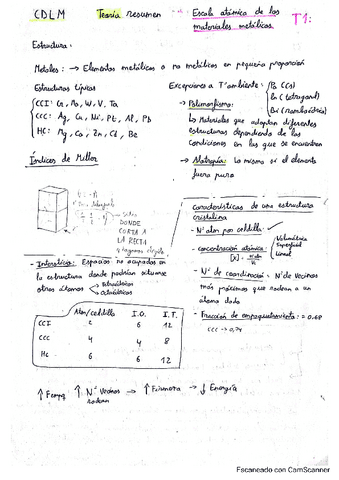 CDLM Teoría resumen Escala atómica de los materiales metálicos T1:
Estructura.
Metales: → Elementos metálicos o no metálicos en pequeña proporción
Estructuras típicas
CCI: Cr, W, V, Ta
CCC: Ag, Cu, Ni, Pt, Al, Pb
HC: Mg, Co, Zn, Cd, Be
Excepciones a Tª ambiente:
Po (CS)
In (tetragonal)
→ Polimorfismo:
Los Materiales que adoptan diferentes
estructuras dependiendo de las
condiciones en las que se encuentran
→ Alotropía: Lo mismo si el elemento
fuera puro
Índices de Miller
DONDE
CORTA A
LA RECTA
- Intersticio: Espacios no ocupados en
la estructura donde podrían situarse
otros átomos
Tetraédricos
Octaédricos
Átom/celdilla I.O. I.T.
CCI 2 6 12
CCC 4 4 8
HC 6 6 12
Características de una estructura
cristalina
- Nº átom por celdilla:
- concentración atómica:
Volumétrica
Superficial
Lineal
- Nº de coordinación: Nº de Vecinos
más próximos que rodean a un
átomo dado
- Fracción de empaquetamiento: = 0.68
CCC → 0,74
↑ Fempq ↑ Nº Vecinos rodean → ↑ Firmeza → ↓ Energía
Escaneado con CamScanner